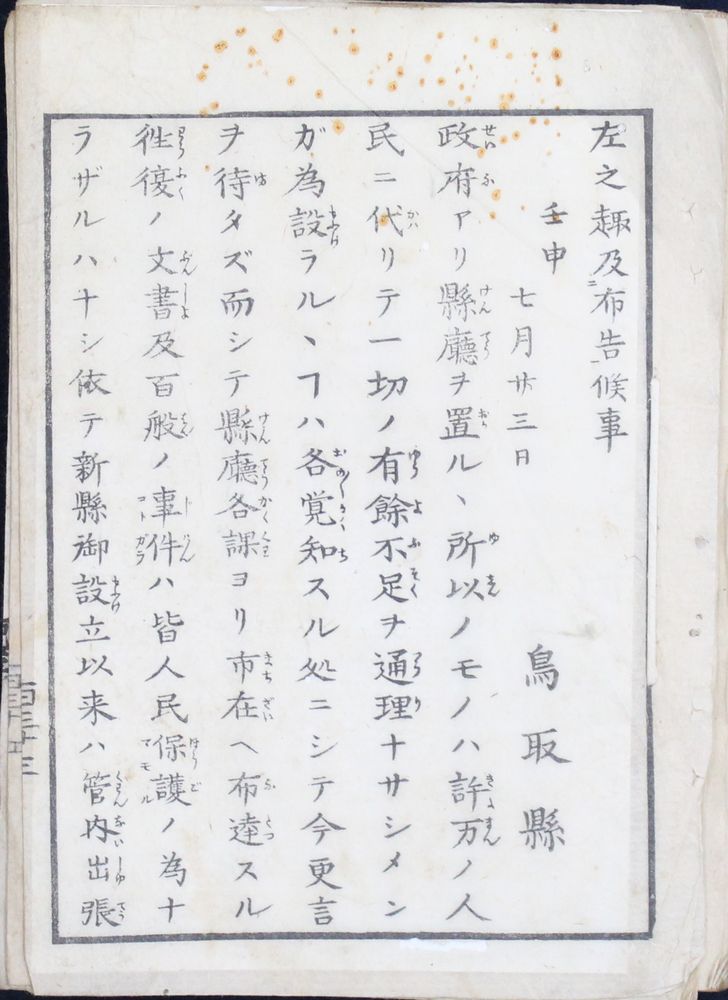 左之趣及ニ布告候事
壬申　七月廿三日
鳥取縣
政府アリ縣廳ヲ置ル丶所以ノモノハ許万ノ人
民ニ代リテ一切ノ有餘不足ヲ通理ナサシメン
ガ為設ラル丶ヿハ各覚知スル処ニシテ今更言
ヲ待タズ而シテ縣廳各課ヨリ市在ヘ布達スル
徃復ノ文書及百般ノ事件ハ皆人民保護ノ為ナ
ラザルハナシ依テ新縣御設立以来ハ管内出張